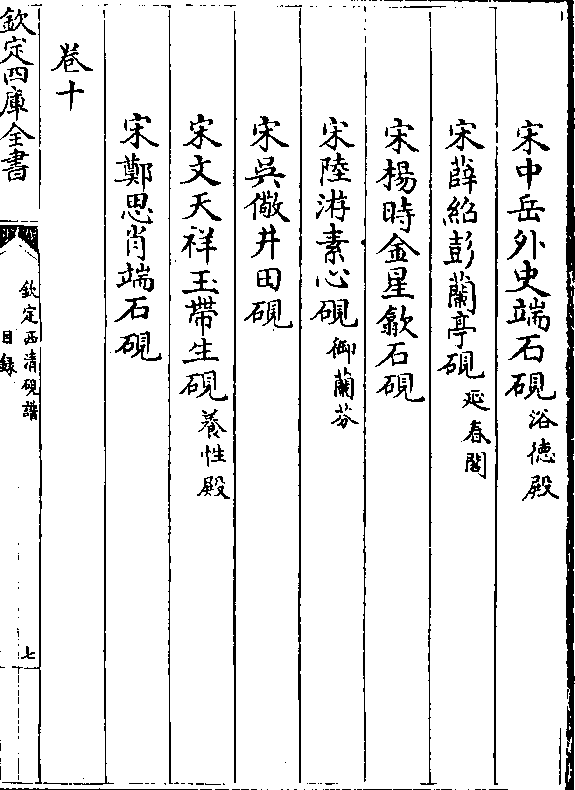 宋中岳外史端石硯浴德殿
宋薛紹彭蘭亭硯延春閣
宋楊時金星歙石硯
宋陸游素心硯御蘭芬
宋吳儆井田硯
宋文天祥玉帶生硯養性殿
宋鄭思肖端石硯
卷十
欽定四庫全書
欽定西清硯譜
目錄
七